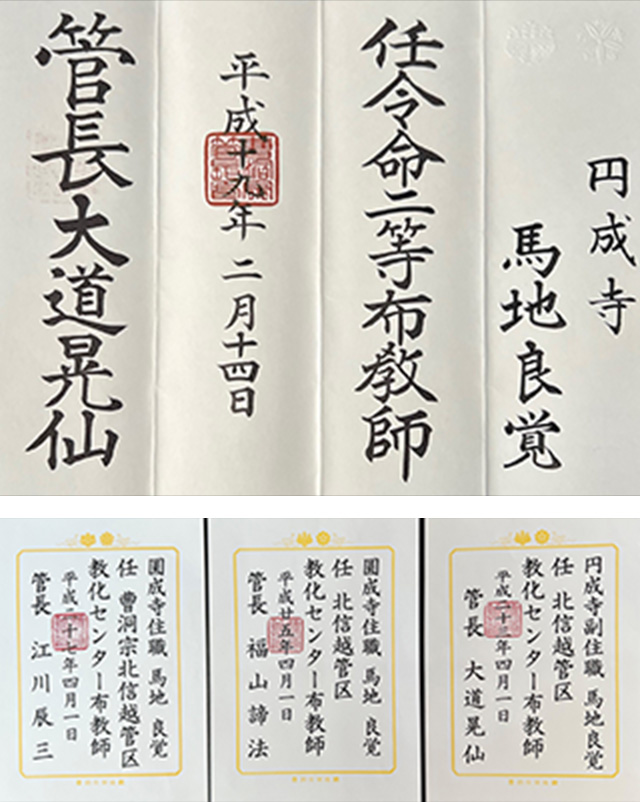 円成寺
馬地良覚
任令命二等布教師
平成十九年二月十四日
管長大道晃仙
圓成寺住職 馬地 良覚
任 曹洞宗北信越管区
教化センター布教師
平成二十七年四月一日
管長 江川辰三
圓成寺住職 馬地 良覚
任 北信越管区
教化センター布教師
平成廿五年四月一日
管長 福山諦法
円成寺副住職 馬地良覚
任 北信越管区
教化センター布教師
平成二十三年四月一日
管長 大道晃仙